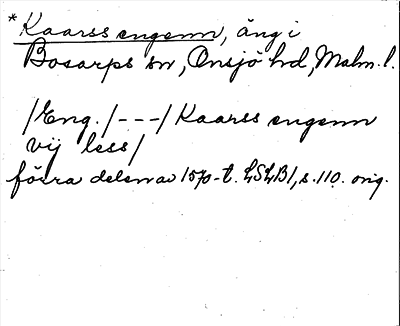 * Kaarss engenn, äng i
Bosarps sn, Onsjö hd, Malm. l.
/Eng./---/Kaarss engenn
vij less/
förra delen av 1570-t. LSLB1, s. 110. orig.